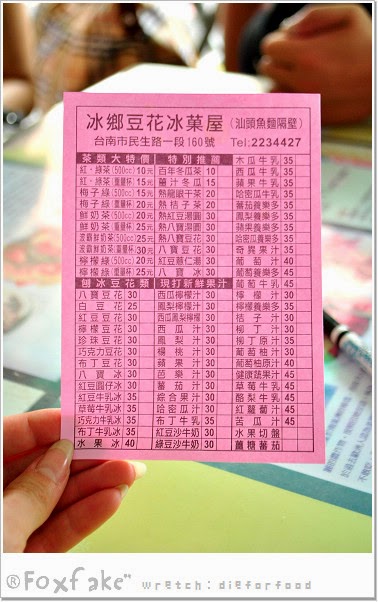 冰鄉豆花冰菓屋(汕頭魚麵隔壁)
台南市民生路一段160號 Tel:2234427
茶類大特價 特別推薦 木瓜牛乳 35
紅、綠茶(500cc) 10元 百年冬瓜茶 10 西瓜牛乳 35
紅、綠茶(重量杯) 15元 薑汁冬瓜 15 蘋果牛乳 35
梅子綠(500cc) 15元 熱龍眼干茶 20 哈密瓜牛乳 35
梅子綠(重量杯) 20元 熱桔子茶 30 蕃茄養樂多 35
鮮奶茶(500cc) 20元 熱紅豆湯圓 30 鳳梨養樂多 35
鮮奶茶(重量杯) 25元 熱八寶湯圓 30 蘋果養樂多 35
波霸鮮奶茶(500cc) 25元 熱八寶豆花 30 哈密瓜養樂多 35
波霸鮮奶茶(重量杯) 30元 八寶豆花 30 奇異果汁 35
檸檬綠(500cc) 20元 紅豆薏仁湯 30 葡萄汁 40
檸檬綠(重量杯) 25元 八寶冰 30 葡萄養樂多 45
刨冰豆花類 現打新鮮果汁 葡萄牛乳 45
八寶豆花 30 西瓜檸檬汁 30 檸檬汁 30
白豆花 25 鳳梨檸檬汁 30 檸檬養樂多 35
紅豆豆花 30 西瓜鳳梨檸檬 30 桔子汁 30
檸檬豆花 30 西瓜汁 30 柳丁汁 30
珍珠豆花 30 鳳梨汁 30 柳丁原汁 35
巧克力豆花 30 楊桃汁 30 葡萄柚汁 30
布丁豆花 30 蘋果汁 30 葡萄柚原汁 40
八寶冰 30 芭樂汁 30 健康蔬果汁 45
紅豆圓仔冰 30 蕃茄汁 30 草莓牛乳 45
紅豆牛乳冰 35 綜合果汁 30 酪梨牛乳 45
草莓牛乳冰 35 哈密瓜汁 30 紅蘿蔔汁 45
巧克力牛乳冰 35 布丁牛乳 35 苦瓜汁 45
布丁牛乳冰 35 紅豆沙牛奶 30 水果切盤
水果冰 40 綠豆沙牛奶 30 薑糖蕃茄
®Foxfake™ wretch:dieforfood